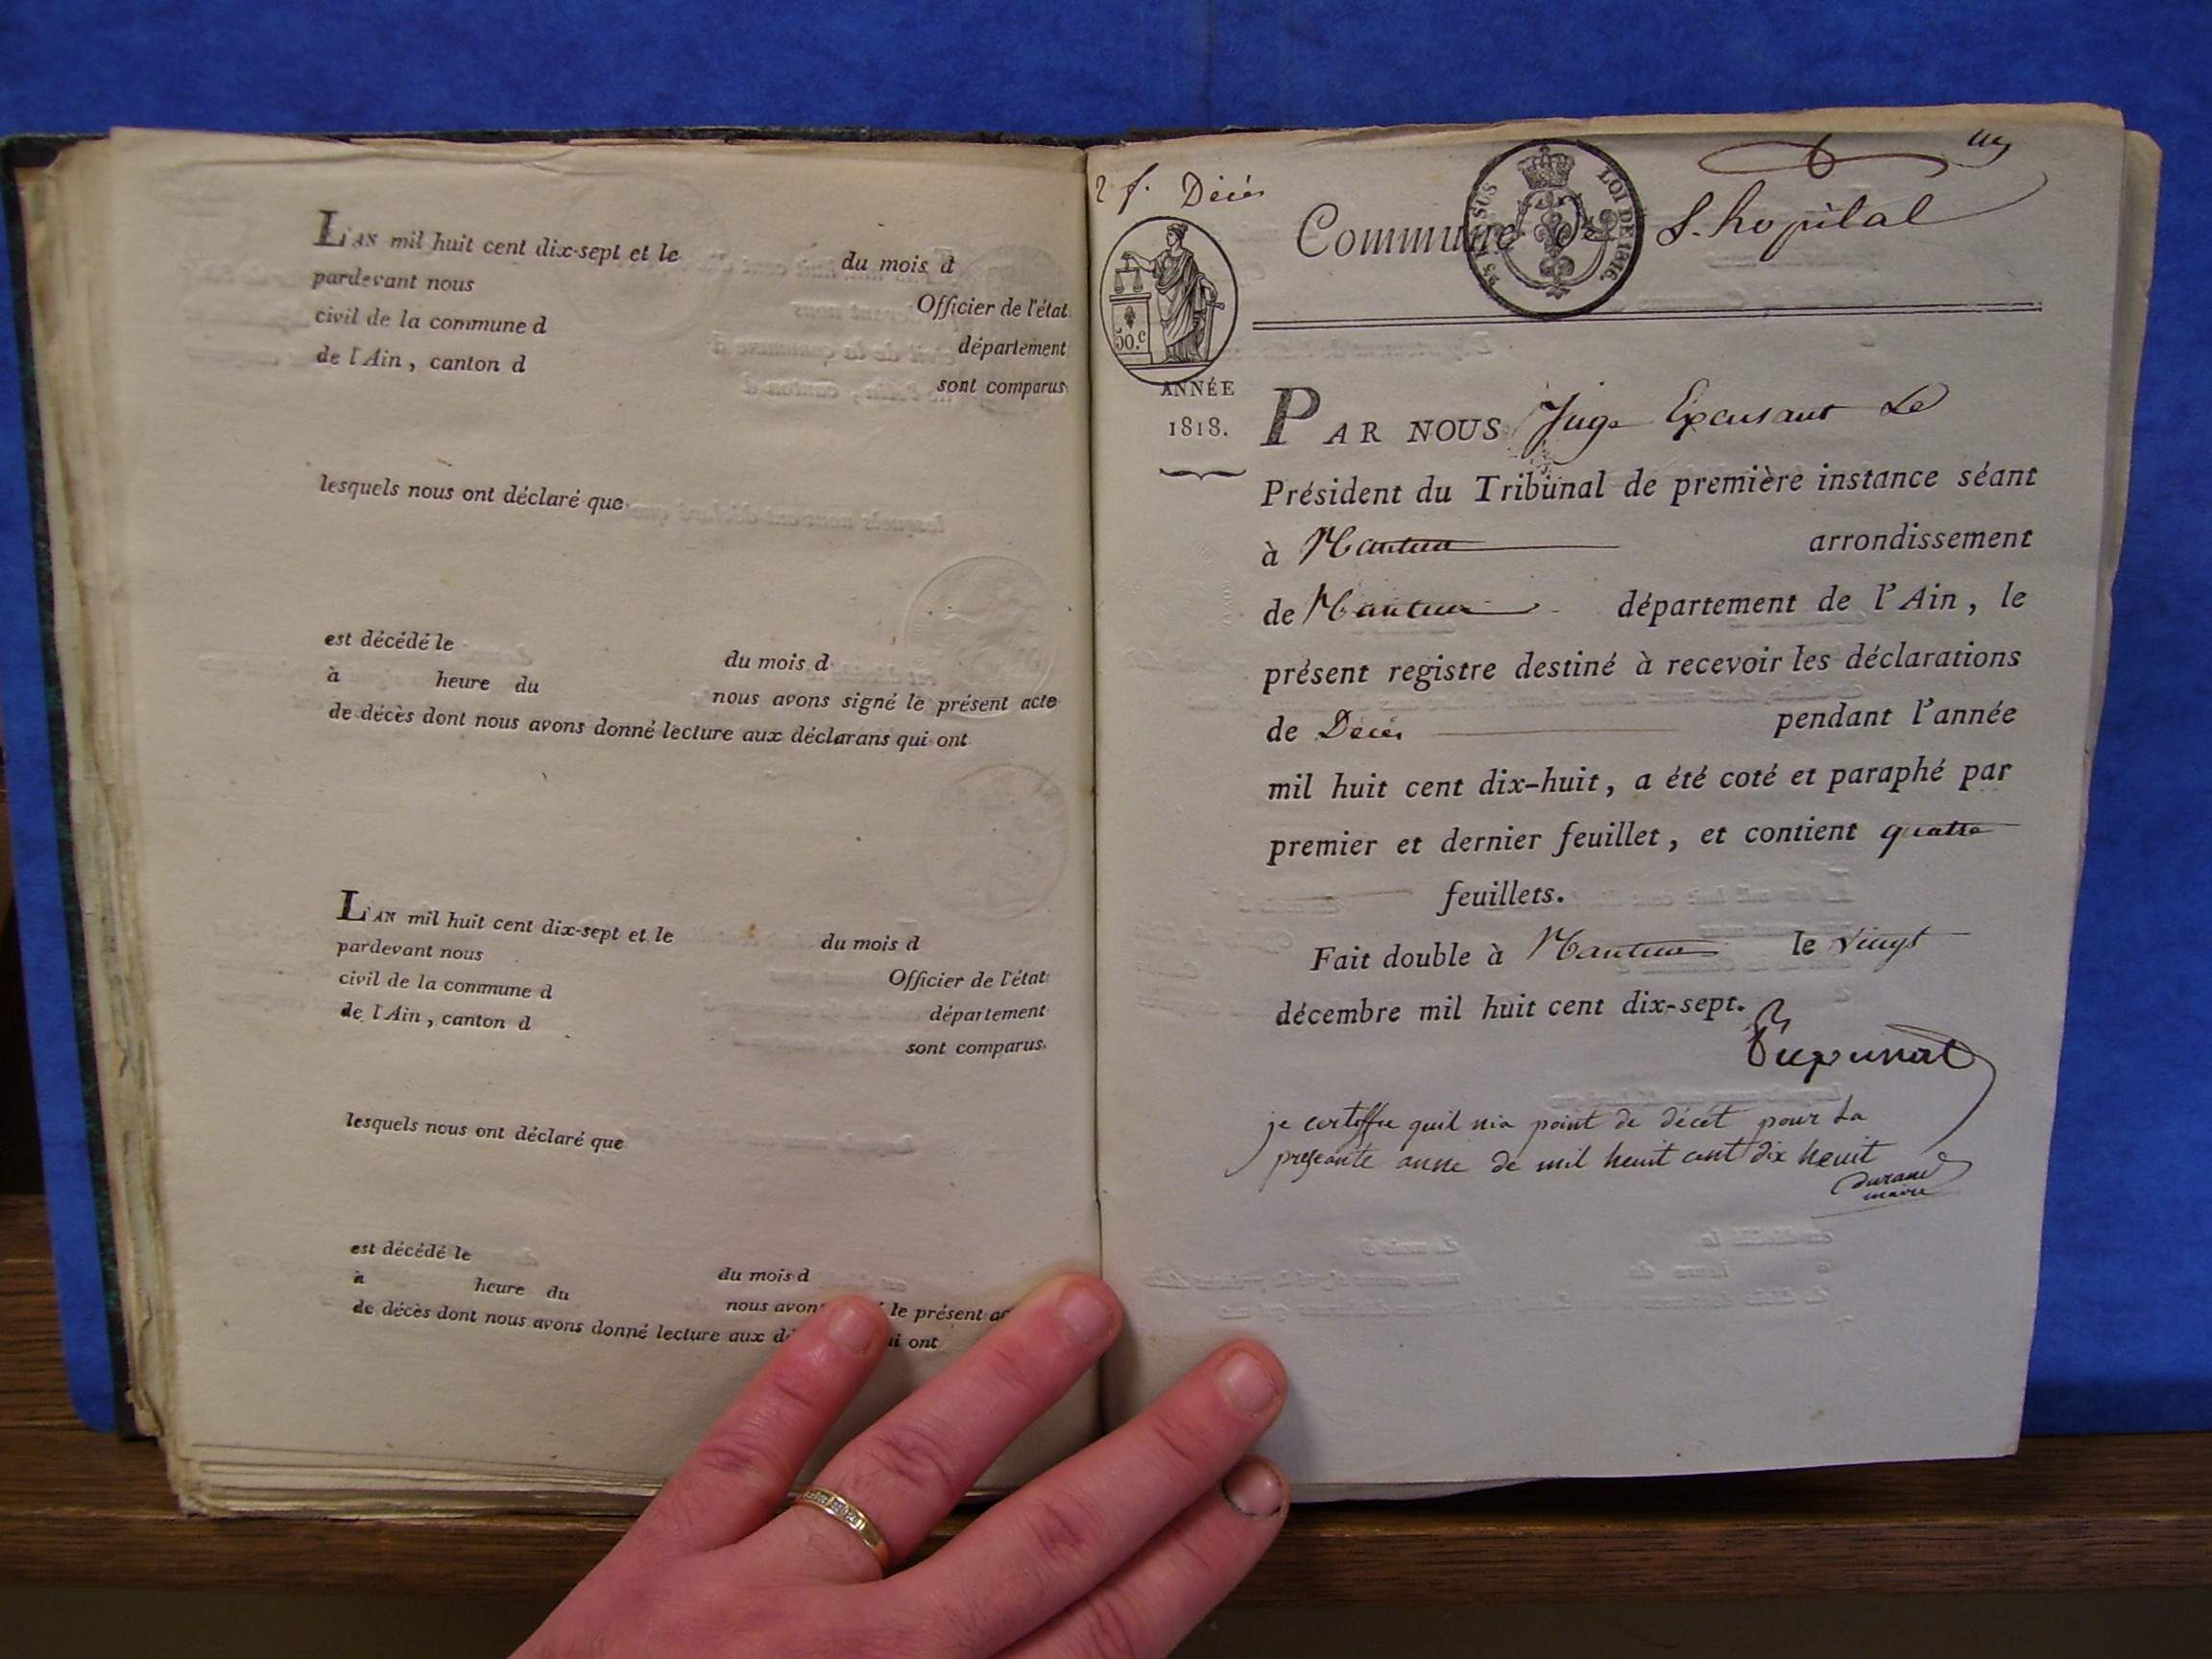 L'AN mil huit cent dix-sept et le du mois d
pardevant nous Officier de l'état
civil de la commune d département
de l'Ain, canton d sont comparus
lesquels nous ont déclaré que
est décédé le du mois d
à heure du nous avons signé le présent acte
de décès dont nous avons donné lecture aux déclarans qui ont
L'AN mil huit cent dix-sept et le du mois d
pardevant nous Officier de l'état
civil de la commune d département
de l'Ain, canton d sont comparus
lesquels nous ont déclaré que
est décédé le du mois d
à heure du nous avon le présent ac
de décès dont nous avons donné lecture aux dé ui ont
2 f. Décès
Commune de L'hopital
25 EN SUS
LOI DE 1816.
50.c
ANNÉE
1818.
PAR NOUS Juge Excusant Le
Président du Tribunal de première instance séant
à Nantua arrondissement
de Nantua département de l'Ain, le
présent registre destiné à recevoir les déclarations
de Décès pendant l'année
mil huit cent dix-huit, a été coté et paraphé par
premier et dernier feuillet, et contient quatre
feuillets.
Fait double à Nantua le vingt
décembre mil huit cent dix-sept.
je certiffie quil nia point de décét pour La
preseante anne de mil heuit cent dix heuit
Durand
maire